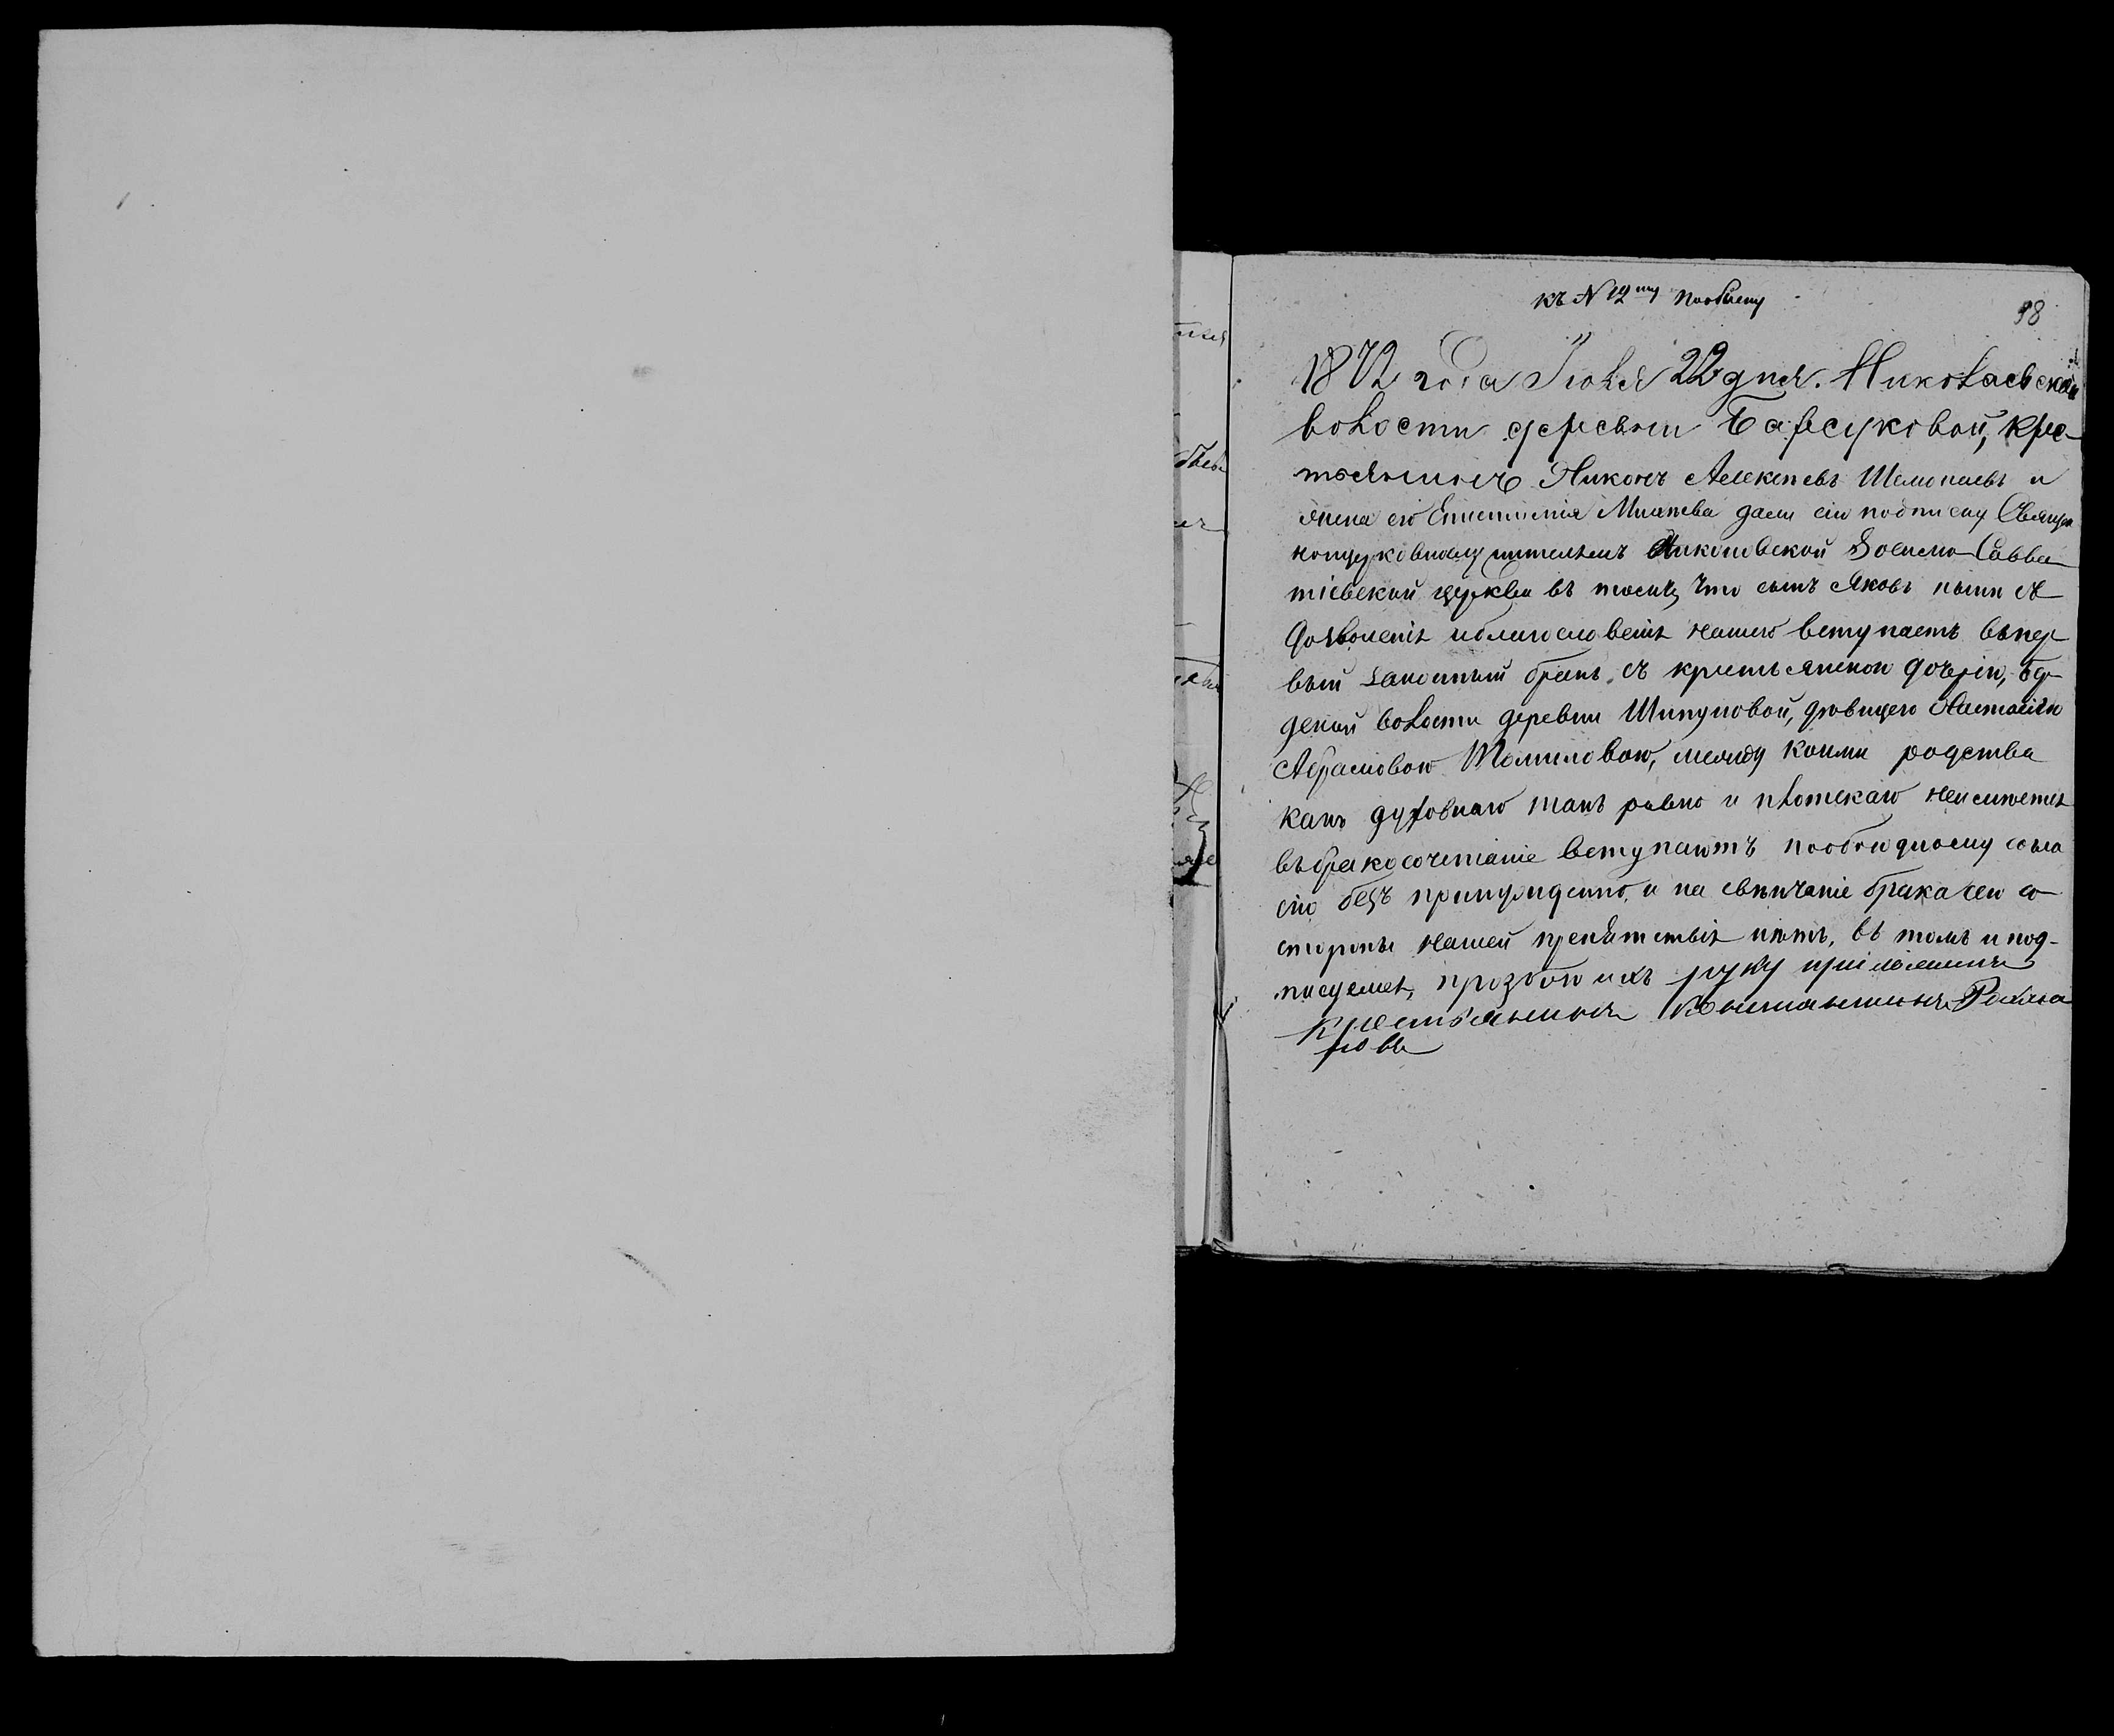 къ N 12му пообыску
98
1872 года Iюля 22 дня. Николаевской
волости деревни Барсуковой, кре-
стьянинъ Никонъ Алексѣевъ Шемонаевъ и
жена его Мишѣева даем сiю подписку Священ
ноцерковнослужителямъ Никоновской Зосимо-Савва
тiевской церкви въ томъ, что сынъ Яковъ нынѣ съ
дозволенiя иблагословенiя нашего вступаетъ въпер
вый законный бракъ, съ крестьянскою дочерiю,
волости деревни Шипуновой, дѣвицею Анастасiею
Абрамовою Томиловою, между коими родства
какъ духовнаго такъ равно и плотскаго неимѣется
въбракосочетанiе вступаютъ пообоюдному согла
сiю безъ принужденно, и на свѣнчанiе брака сего со
стороны нашей препятствiя нѣтъ, въ томъ и под-
писуемся, прозбою ихъ руку приложилъ
Крестьянинъ Константинъ
ровъ